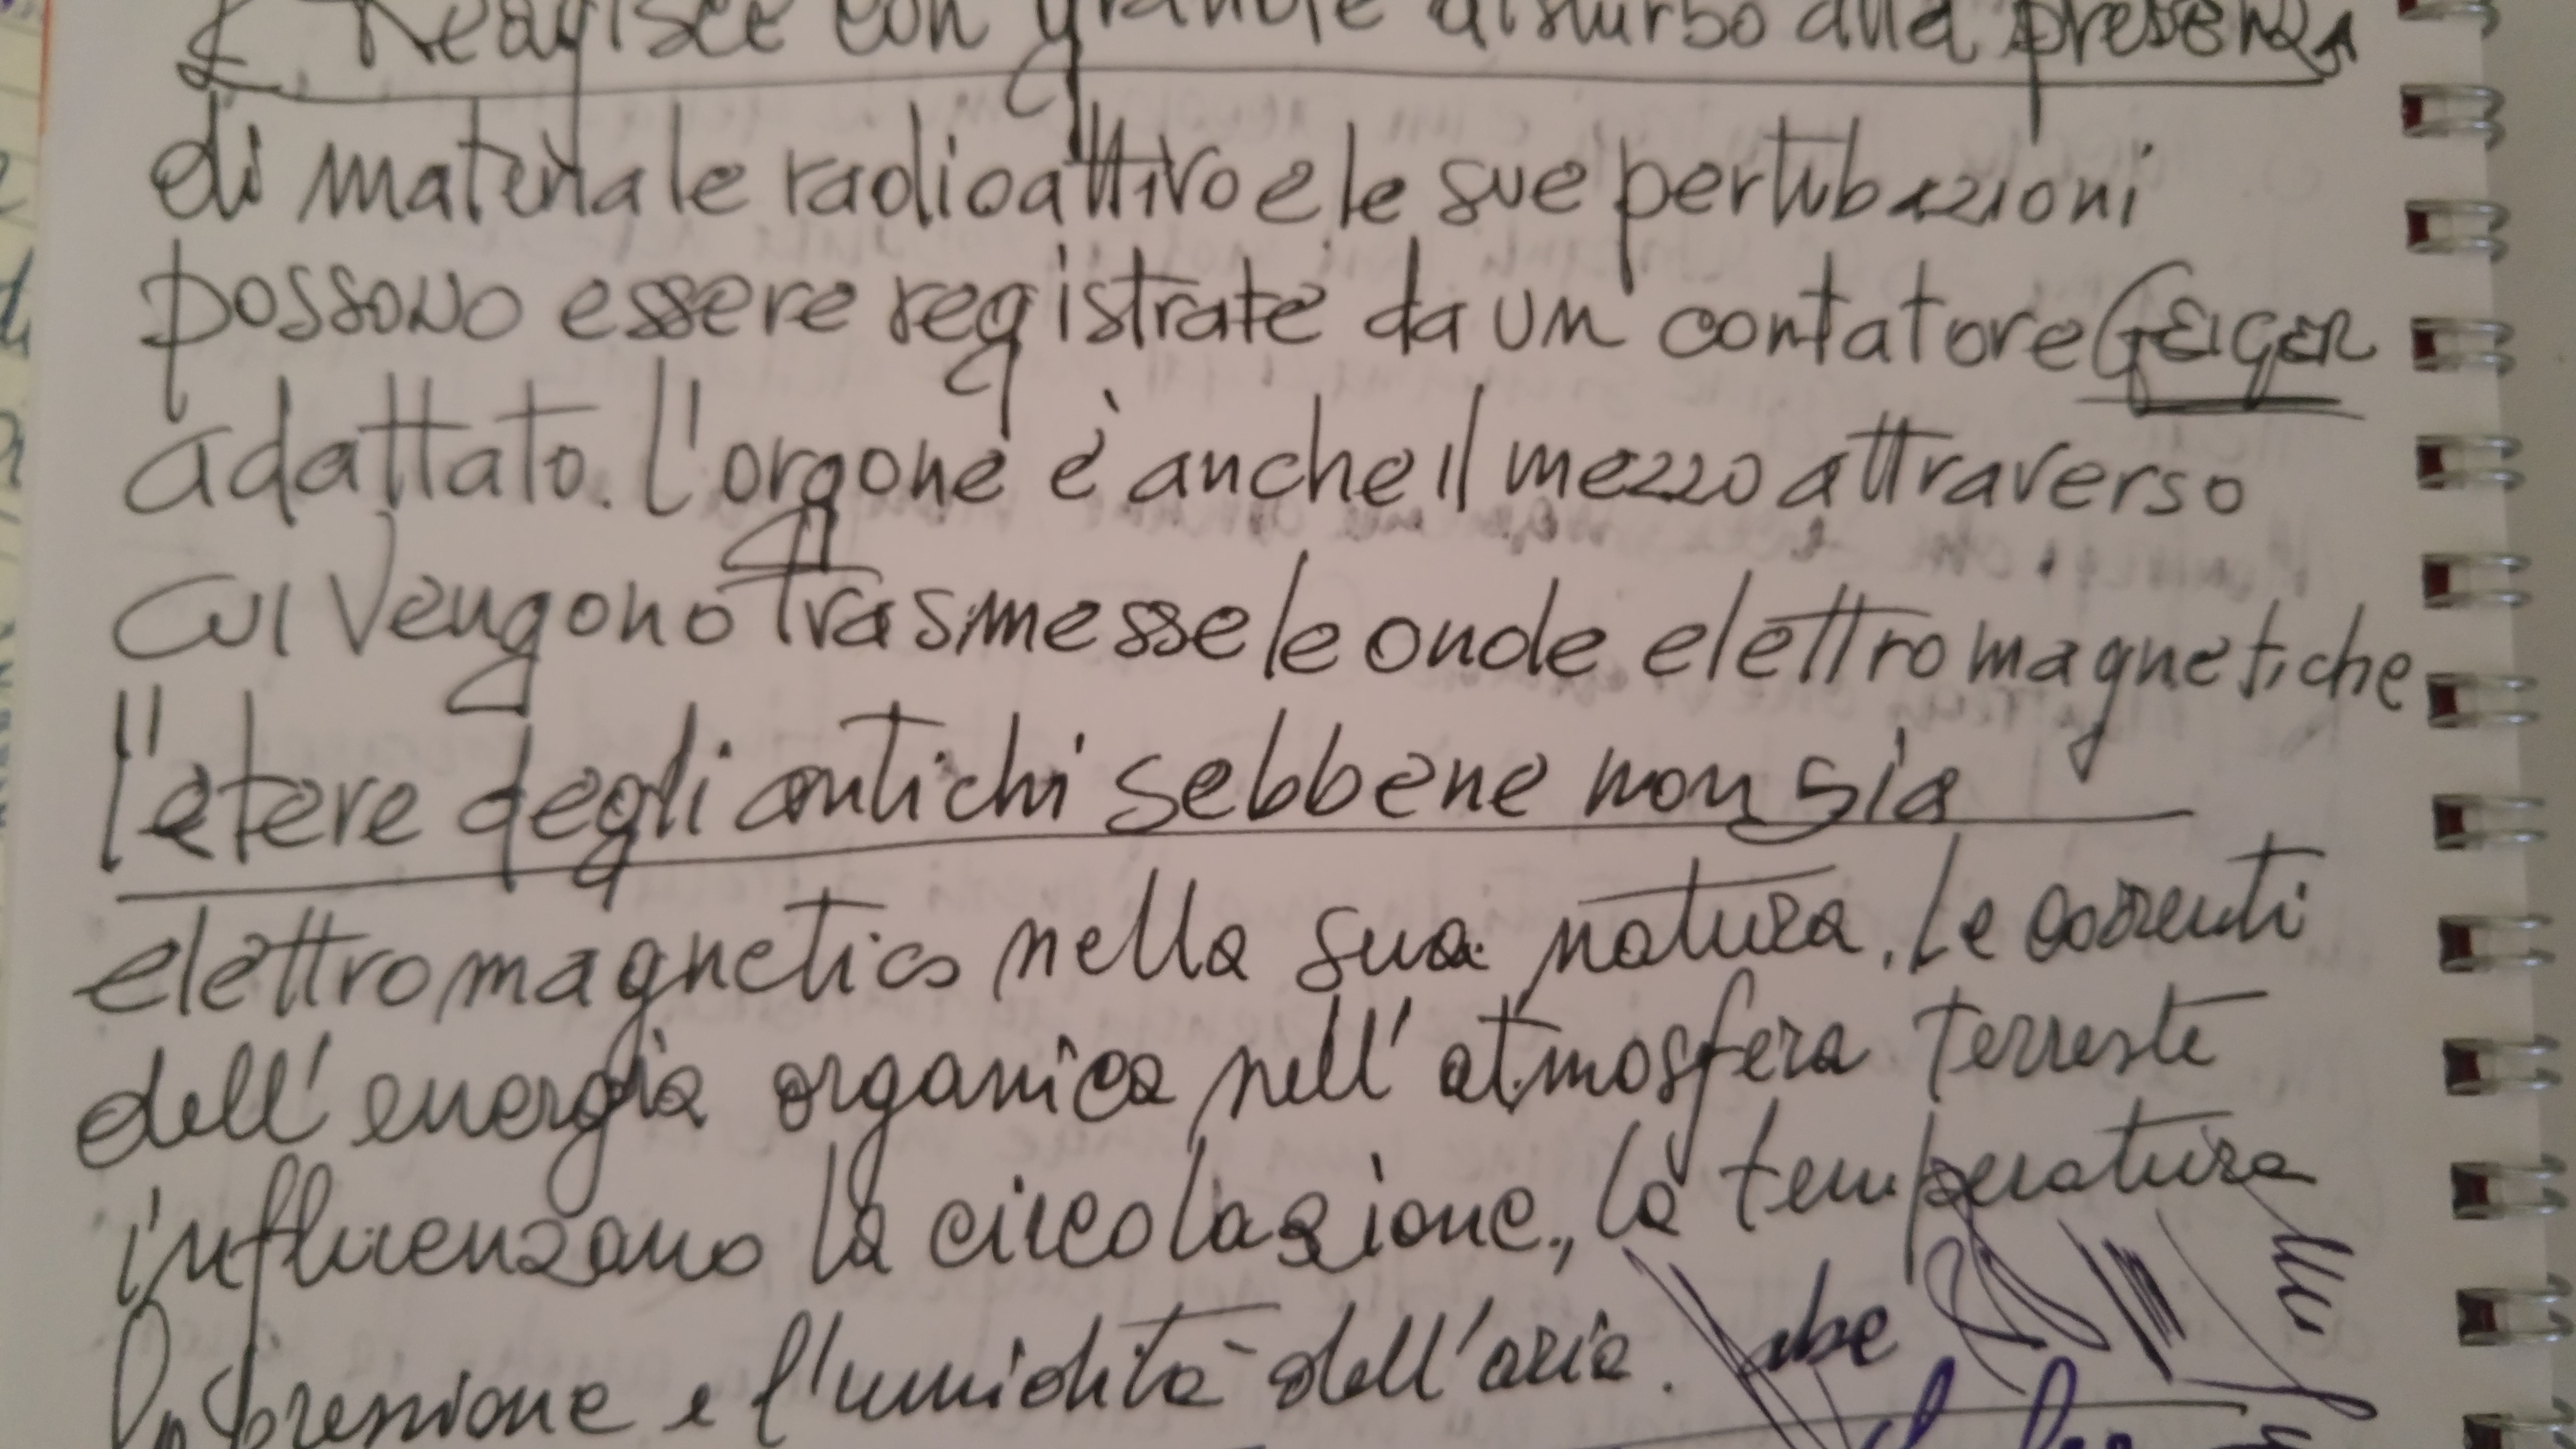 E. Reagisce con grande disturbo alla presenza
di materiale radioattivo e le sue pertubazioni
possono essere registrate da un contatore GEIGER
adattato. l'orgone è anche il mezzo attraverso
cui vengono trasmesse le onde elettromagnetiche
l'etere degli antichi sebbene non sia
elettromagnetico nella sua natura. Le correnti
dell'energia organica nell'atmosfera terreste
influenzano la circolazione, la temperatura
la pressione e l'umidità dell'aria.